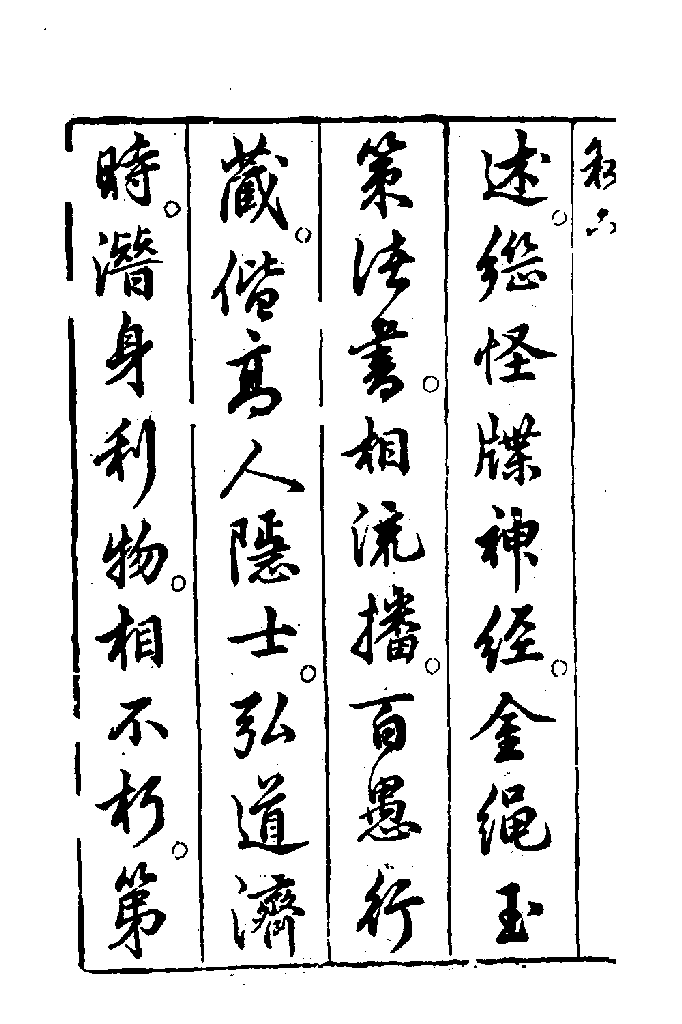 叙六
述。緫怪牒神經。金繩玉
策。法書。相流播。百愚行
藏。偕高人隱士。弘道濟
時。潛身利物。相不朽。第